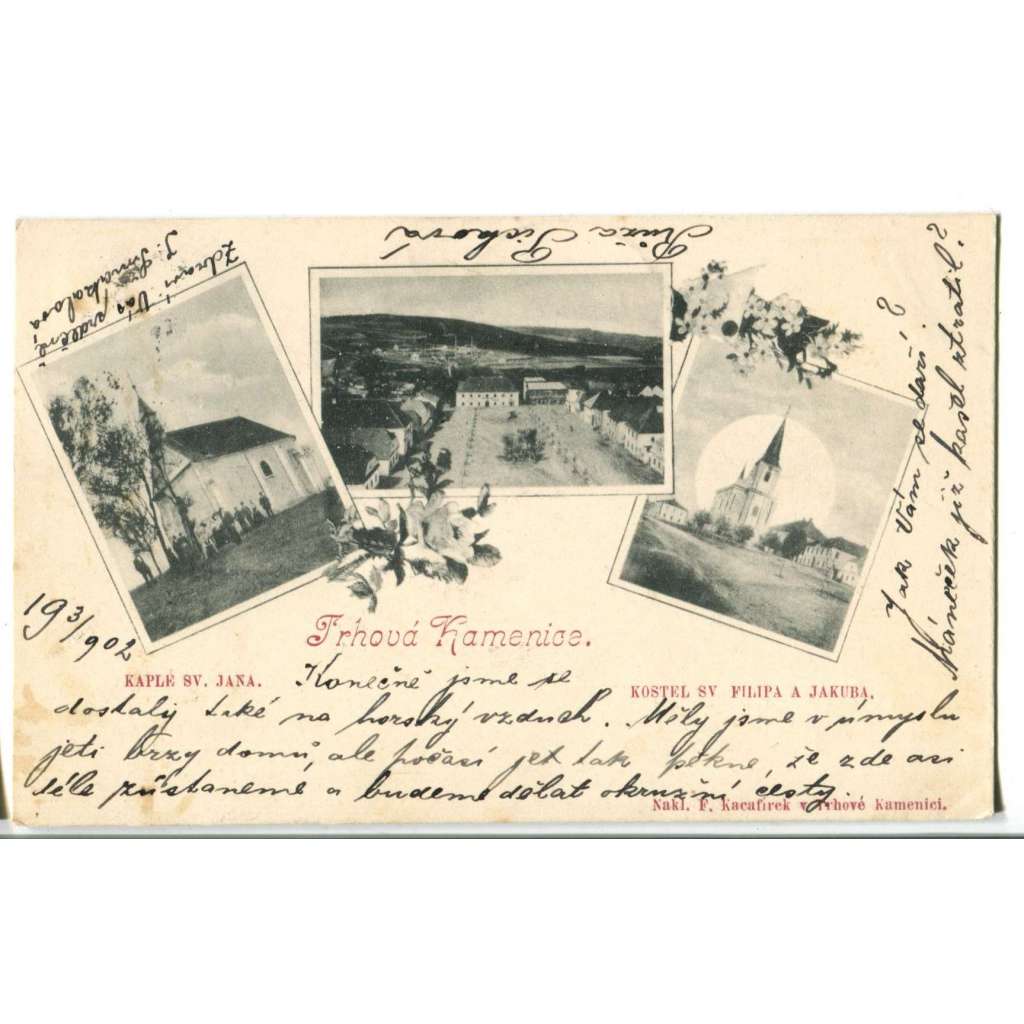 Růža Tichová
Zdraví Vás srdečně
19 3/902
Trhová Kamenice.
KAPLE SV. JANA.
KOSTEL SV FILIPA A JAKUBA.
Konečně jsme se
dostaly také na horský vzduch. Měly jsme v úmyslu
jeti brzy domů, ale počasí jet tak pěkné, že zde asi
déle zůstaneme a budeme dělat okružní cesty.
Nakl. F. Kacafírek v Trhové Kamenici.
Jak Vám se daří?
Máneček již kašel ztratil?